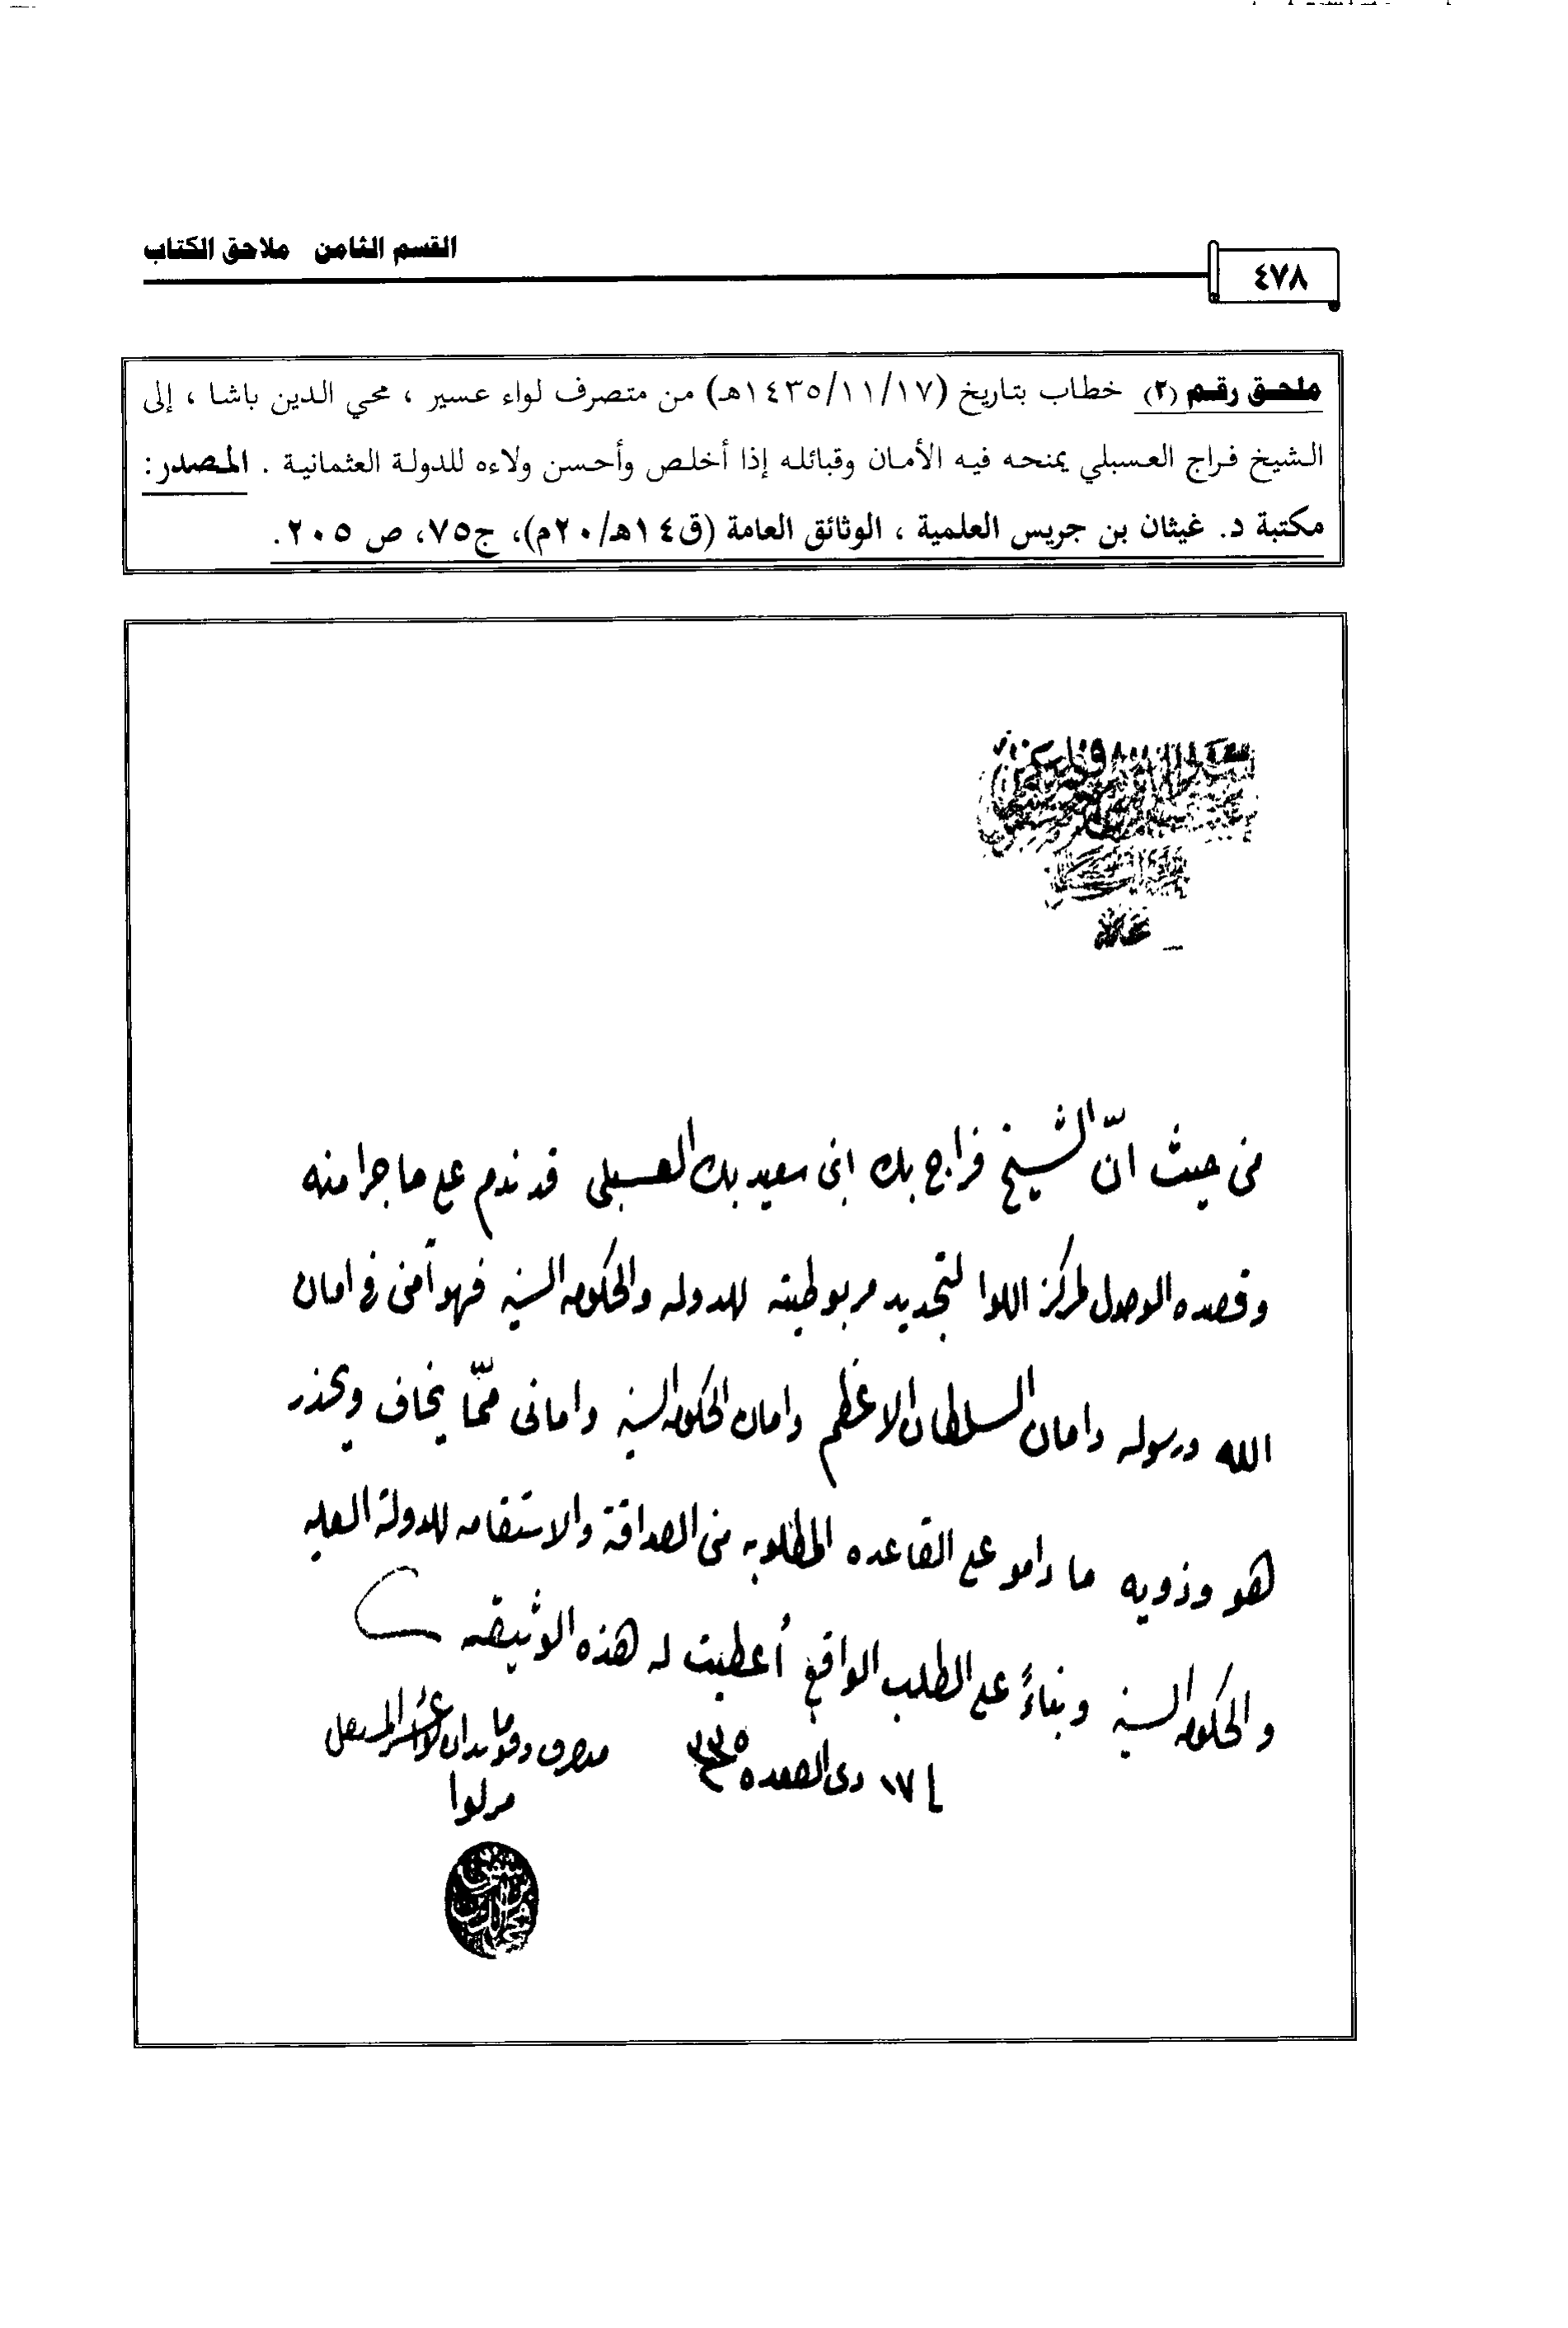 القسم الثامن ملاحق الكتاب
٤٧٨
ملحق رقم (٢) خطاب بتاريخ (١٤٣٥/١١/١٧هـ) من متصرف لواء عسير ، محي الدين باشا ، إلى
الشيخ فراج العسبلي يمنحه فيه الأمان وقبائله إذا أخلص وأحسن ولاءه للدولة العثمانية . المصدر :
مكتبة د. غيثان بن جريس العلمية ، الوثائق العامة (ق١٤هـ/٢٠م)، ج٧٥، ص ٢٠٥.
من حيث انّ الشيخ فراج بك ابن سعيد بك العسبلي قد ندم على ما جرا منه
وقصده الوصول لمركز اللوا لتجديد مربوطيته للدوله والحكومه السنيه فهو آمن في امان
الله ورسوله وامان السلطان الاعظم وامان الحكومه السنيه واماني ممّا يخاف ويحذر
هو وذويه ما دامو على القاعده المطلوبه من الصداقة والاستقامه للدولة العليه
والحكومه السنيه وبناءً على الطلب الواقع أعطيت له هذه الوثيقه
١٧ ذي القعده ٣٣٥
متصرف وقومندان عسير
مرلوا